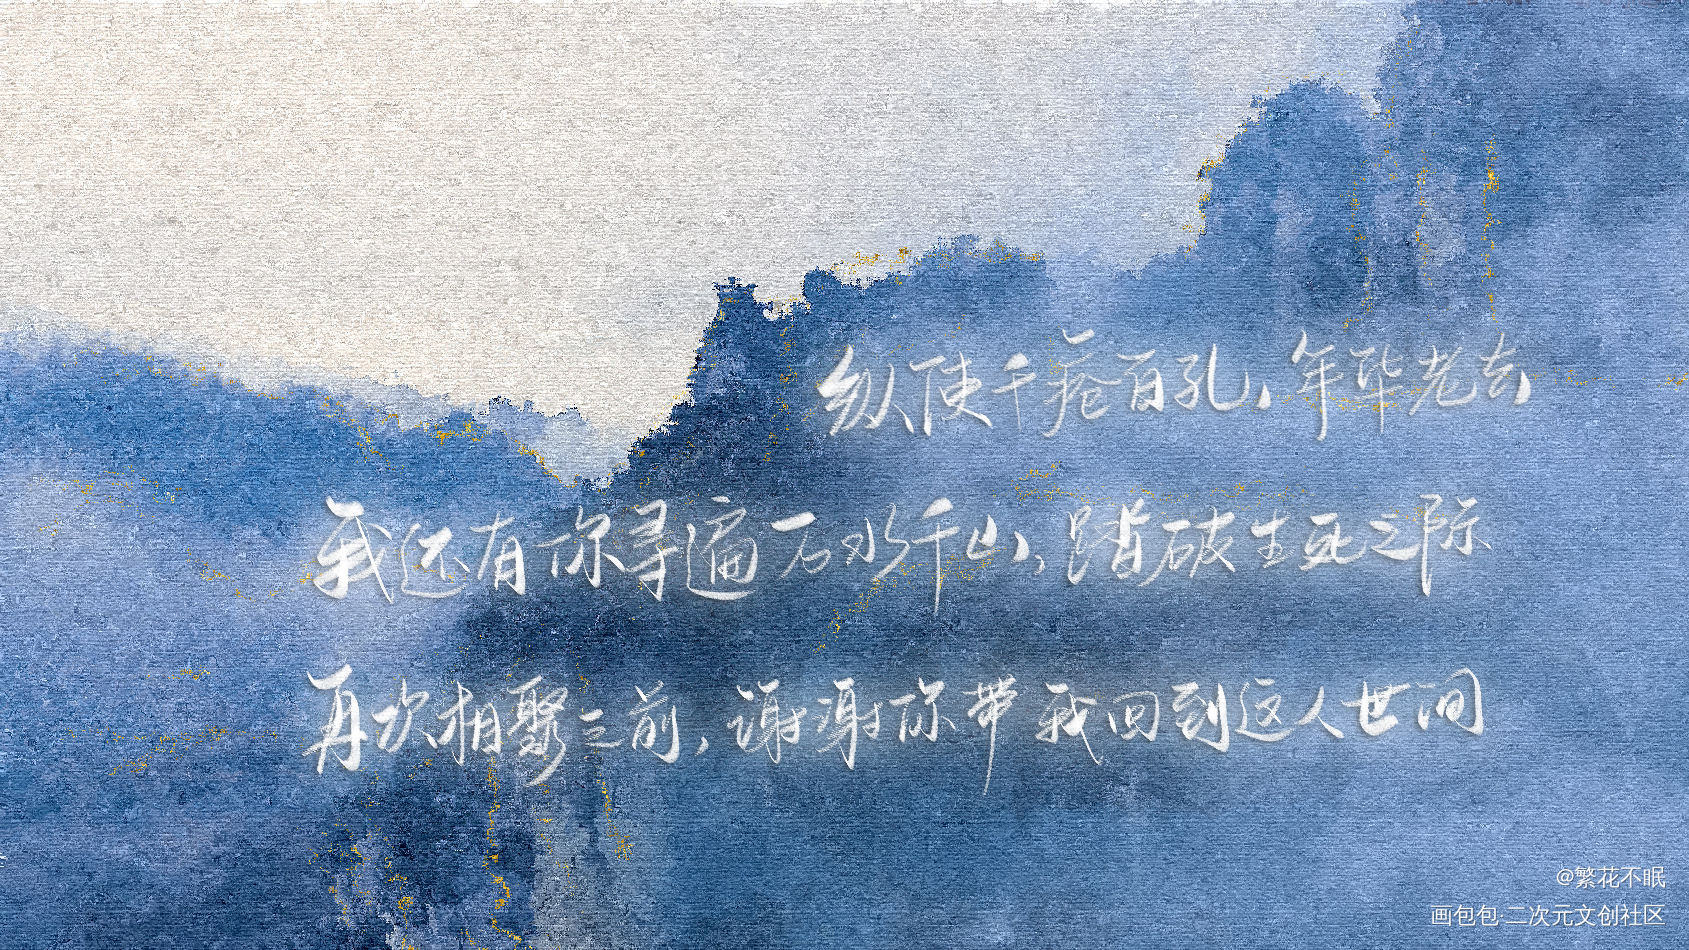 纵使千疮百孔,年华老去
我还有你寻遍万水千山,踏破生死之际
再次相聚之前,谢谢你带我回到这人世间
@繁花不眠
画包包·二次元文创社区